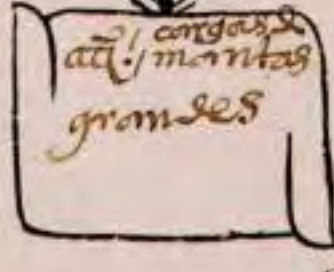 cargas de
mantas
grandes